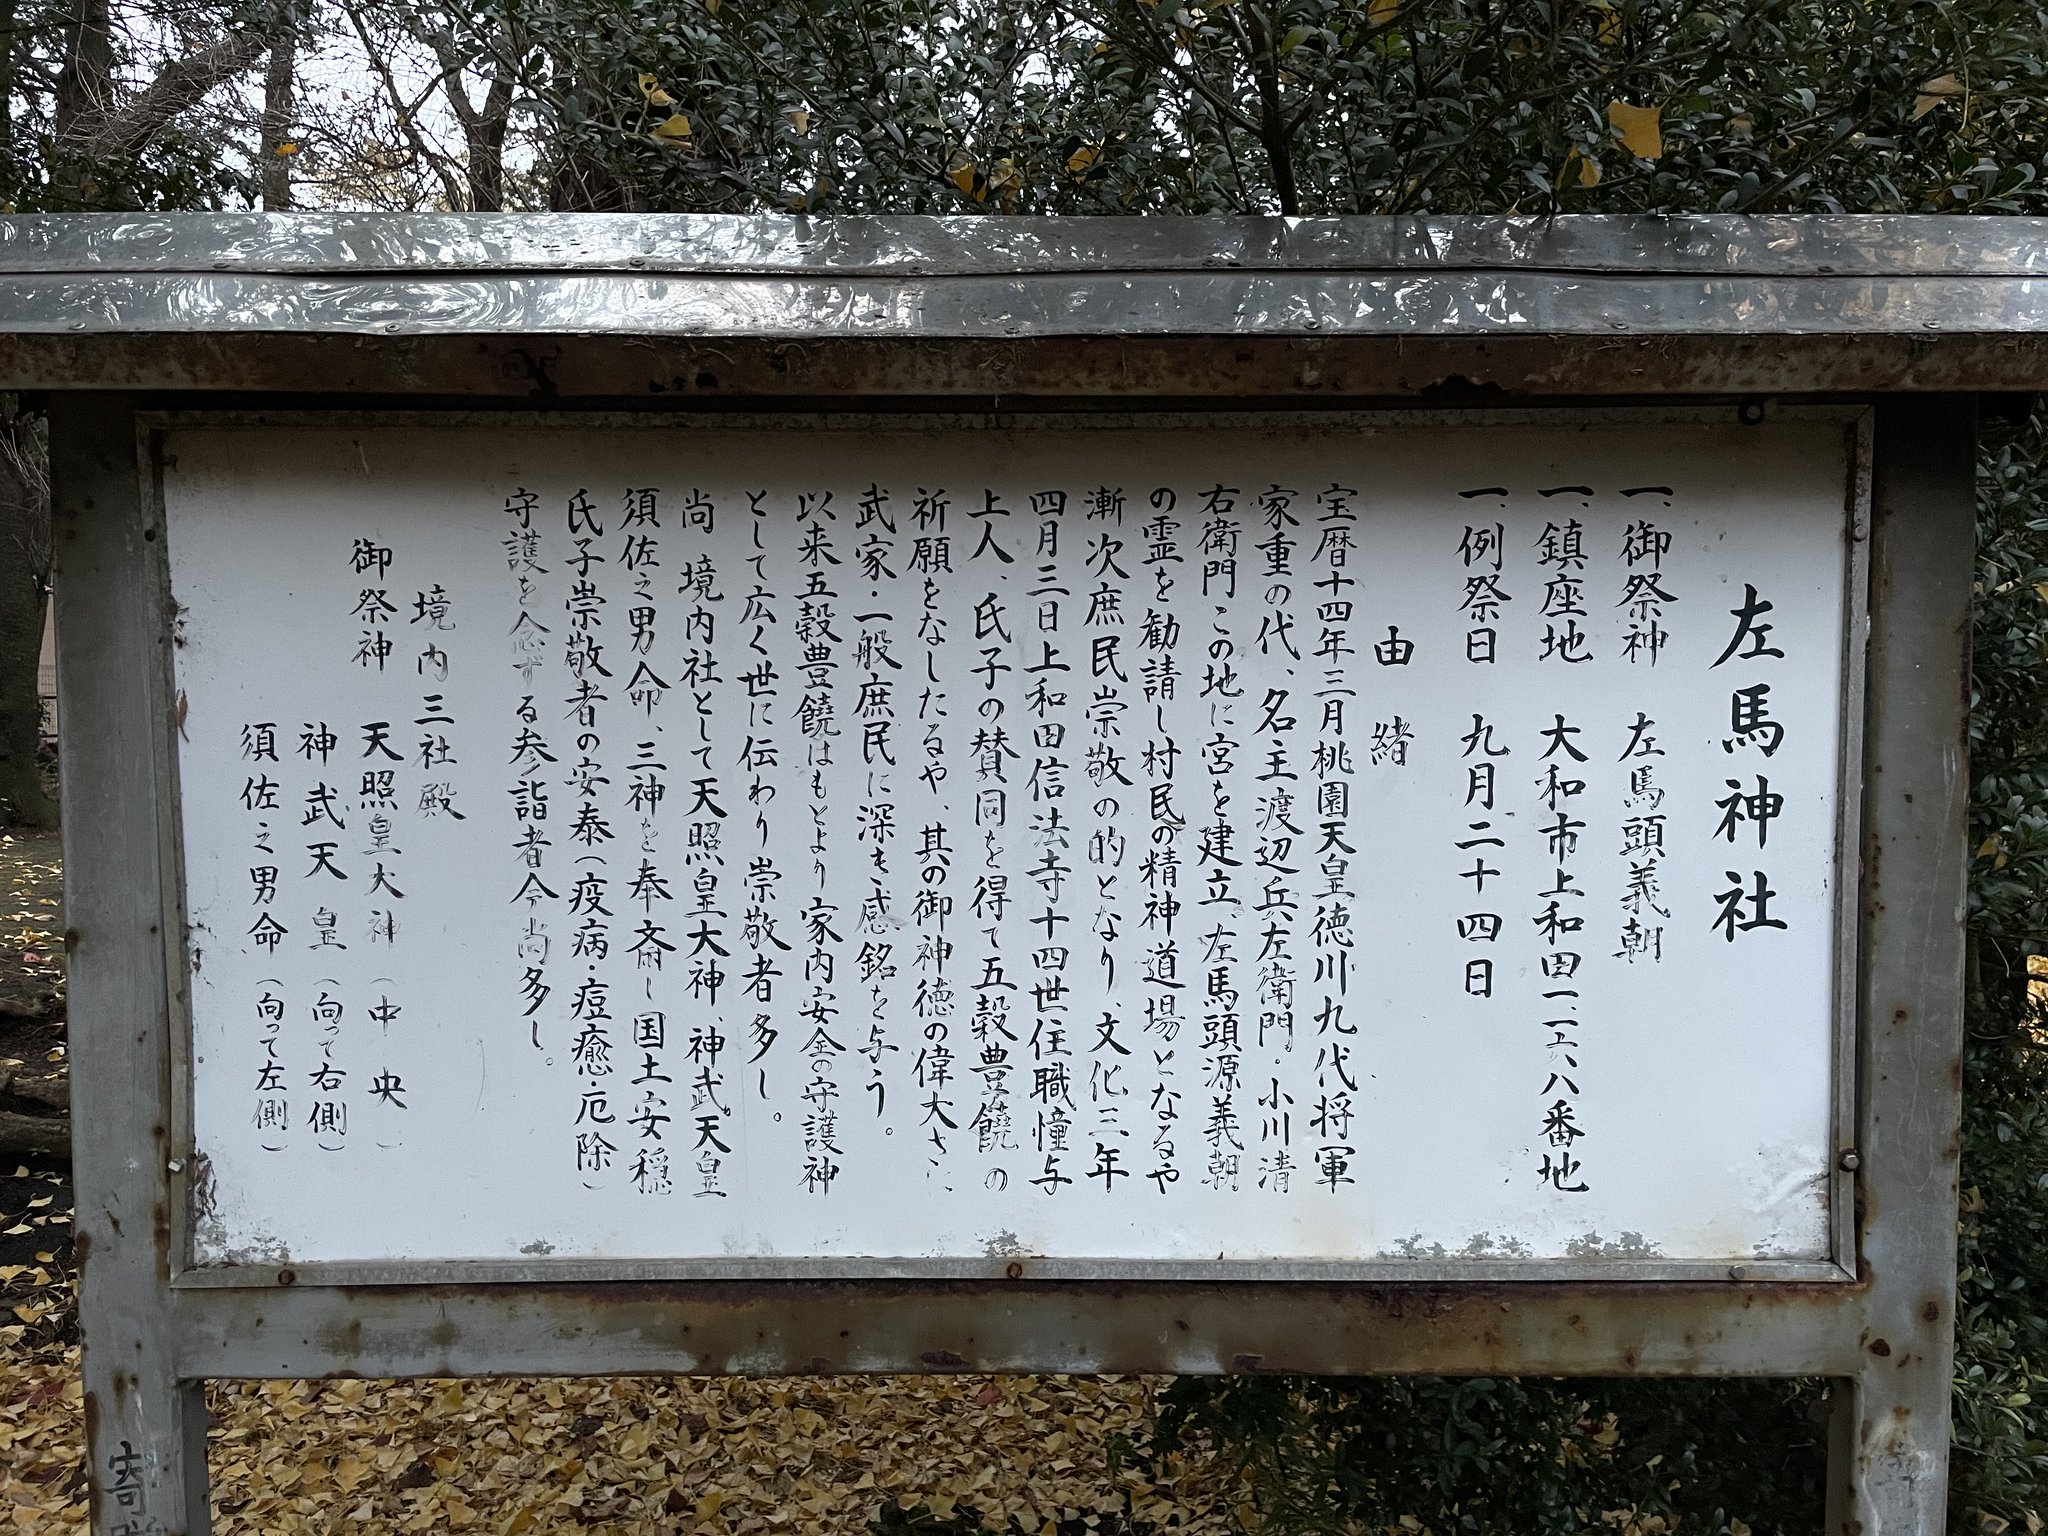 左馬神社
一、御祭神　左馬頭義朝
一、鎮座地　大和市上和田一、一六八番地
一、例祭日　九月二十四日
由緒
宝暦十四年三月桃園天皇徳川九代将軍
家重の代、名主渡辺兵左衛門・小川清
右衛門この地に宮を建立、左馬頭源義朝
の霊を勧請し村民の精神道場となるや
漸次庶民崇敬の的となり、文化三年
四月三日上和田信法寺十四世住職憧与
上人、氏子の賛同を得て五穀豊饒の
祈願をなしたるや、其の御神徳の偉大さに
武家・一般庶民に深き感銘を与う。
以来五穀豊饒はもとより家内安全の守護神
として広く世に伝わり崇敬者多し。
尚 境内社として天照皇大神、神武天皇
須佐之男命、三神を奉斎し国土安穏
氏子崇敬者の安泰（疫病・痘癒・厄除）
守護を念ずる参詣者今尚多し。
境内三社殿
御祭神　天照皇大神（中央）
神武天皇（向って右側）
須佐之男命（向って左側）
寄